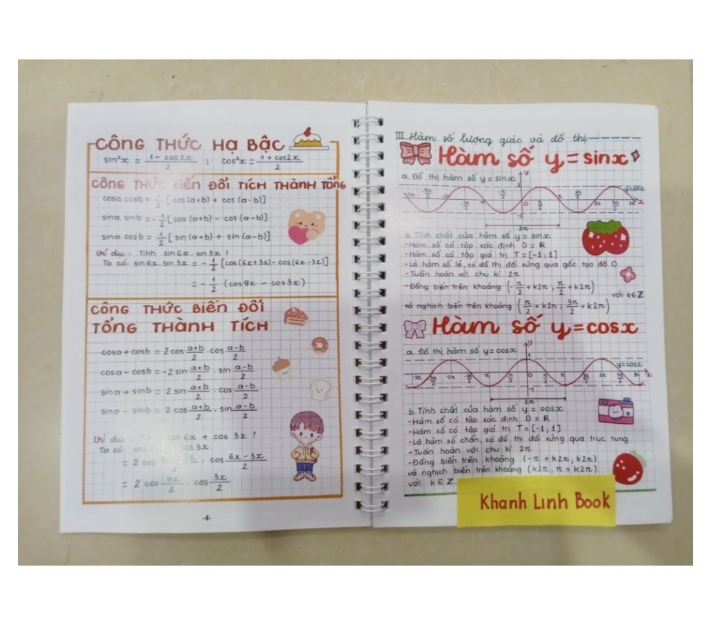 CÔNG THỨC HẠ BẬC
sin²x = 1 - cos2x / 2 ; cos²x = 1 + cos2x / 2
CÔNG THỨC BIẾN ĐỔI TÍCH THÀNH TỔNG
cosa cosb = 1/2 [cos(a+b) + cos(a-b)]
sina sinb = -1/2 [cos(a+b) - cos(a-b)]
sina cosb = 1/2 [sin(a+b) + sin(a-b)]
Ví dụ: Tính sin6x. sin3x ?
Ta có: sin6x. sin3x = -1/2 [cos(6x+3x) - cos(6x-3x)]
= -1/2 (cos9x - cos3x)
CÔNG THỨC BIẾN ĐỔI
TỔNG THÀNH TÍCH
cosa + cosb = 2cos a+b/2 . cos a-b/2
cosa - cosb = -2sin a+b/2 . sin a-b/2
sina + sinb = 2sin a+b/2 . cos a-b/2
sina - sinb = 2cos a+b/2 . sin a-b/2
Ví dụ: cos6x + cos 3x ?
Ta có:
= 2cos . cos 6x-3x/2
= 2cos 9x/2 . cos 3x/2
4
III. Hàm số lượng giác và đồ thị
Hàm số y = sinx
a. Đồ thị hàm số y = sinx
y=sinx
2π
b. Tính chất của hàm số y = sinx
- Hàm số có tập xác định D = R
- Hàm số có tập giá trị T = [-1, 1]
- Là hàm số lẻ, có đồ thị đối xứng qua gốc tọa độ O
- Tuần hoàn với chu kì 2π
- Đồng biến trên khoảng (-π/2 + k2π, π/2 + k2π)
với k∈Z
và nghịch biến trên khoảng (π/2 + k2π, 3π/2 + k2π)
Hàm số y = cosx
a. Đồ thị hàm số y = cosx
y=cosx
2π
b. Tính chất của hàm số y = cosx
- Hàm số có tập xác định D = R
- Hàm số có tập giá trị T = [-1, 1]
- Là hàm số chẵn, có đồ thị đối xứng qua trục tung
- Tuần hoàn với chu kì 2π
- Đồng biến trên khoảng (-π + k2π, k2π)
và nghịch biến trên khoảng (k2π, π + k2π)
với k∈Z
Khanh Linh Book